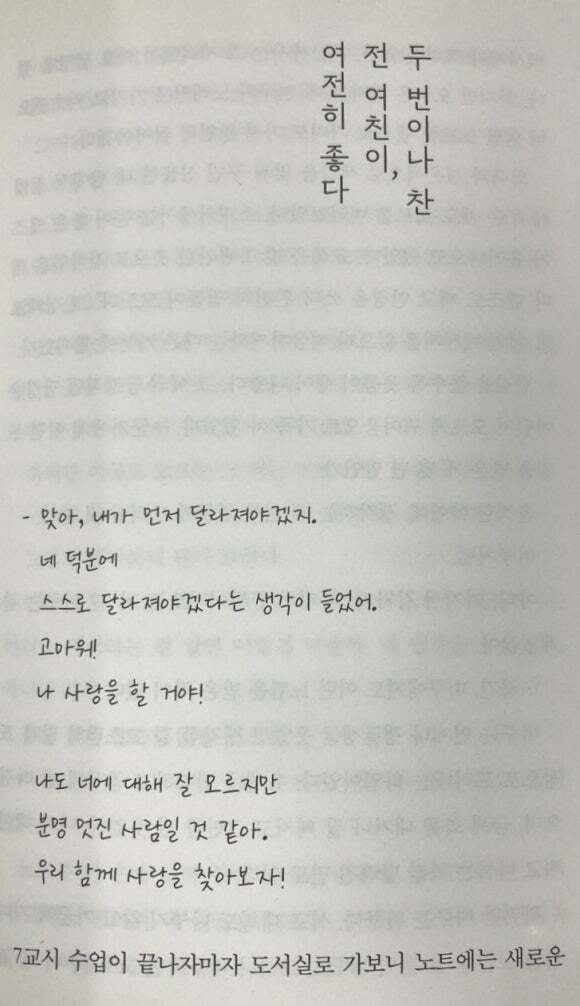 두 번이나 찬
전 여친이,
여전히 좋다
- 맞아, 내가 먼저 달라져야겠지.
네 덕분에
스스로 달라져야겠다는 생각이 들었어.
고마워!
나 사랑을 할 거야!
나도 너에 대해 잘 모르지만
분명 멋진 사람일 것 같아.
우리 함께 사랑을 찾아보자!
7교시 수업이 끝나자마자 도서실로 가보니 노트에는 새로운